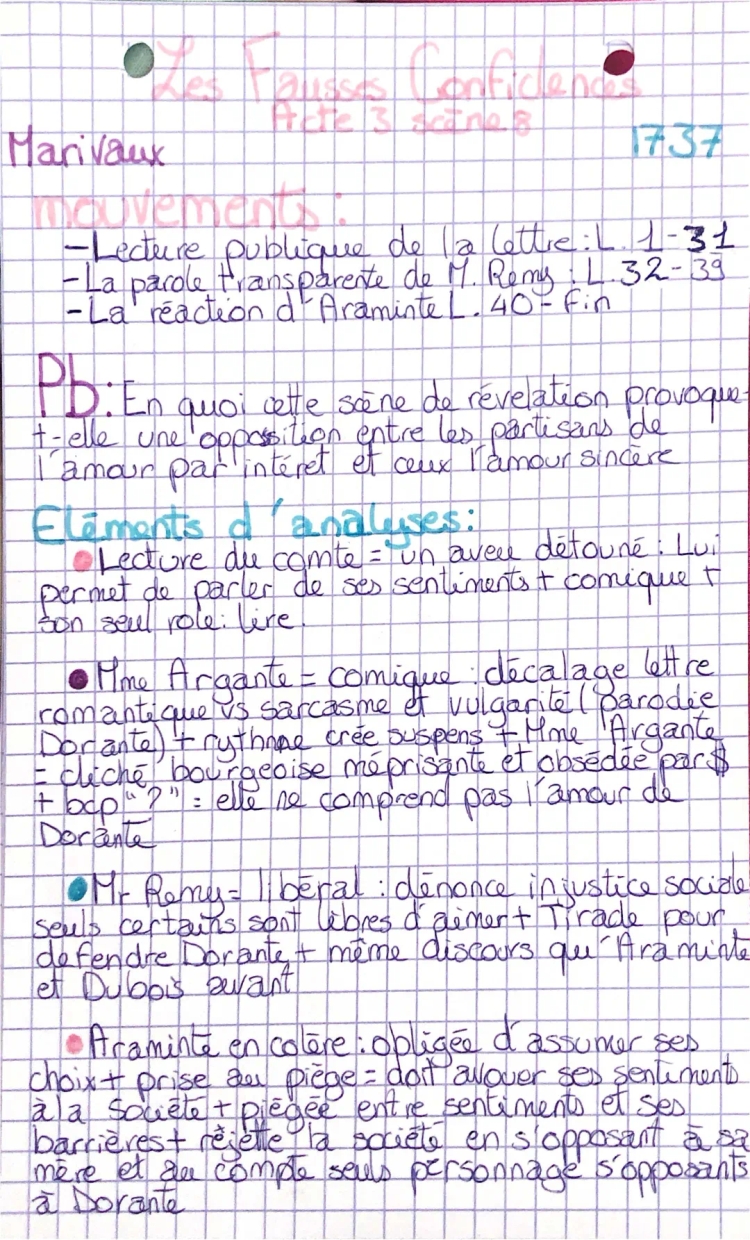 Les Fausses Confidences
Acte 3 scène 8
Marivaux 1737
mouvements :
- Lecture publique de la lettre : L. 1-31
- La parole transparente de M. Remy : L. 32-39
- La réaction d'Araminte L. 40 - fin
Pb : En quoi cette scène de révelation provoque-
t-elle une opposition entre les partisans de
l'amour par intéret et ceux l'amour sincère
Eléments d'analyses :
Lecture du comte = un aveu détouné : Lui
permet de parler de ses sentiments + comique +
son seul role : lire.
Mme Argante = comique : décalage lettre
romantique vs sarcasme et vulgarité (parodie
Dorante) + rythme crée suspens + Mme Argante
= cliché bourgeoise méprisante et obsédée par $
+ bcp "?" = elle ne comprend pas l'amour de
Dorante
Mr Remy = libéral : dénonce injustice sociale
seuls certains sont libres d'aimer + Tirade pour
defendre Dorante + même discours qu'Araminte
et Dubois avant
Araminte en colère : obligée d'assumer ses
choix + prise au piège = doit avouer ses sentiments
à la société + piégée entre sentiments et ses
barrières + rejette la société en s'opposant à sa
mère et au compte seuls personnage s'opposants
à Dorante